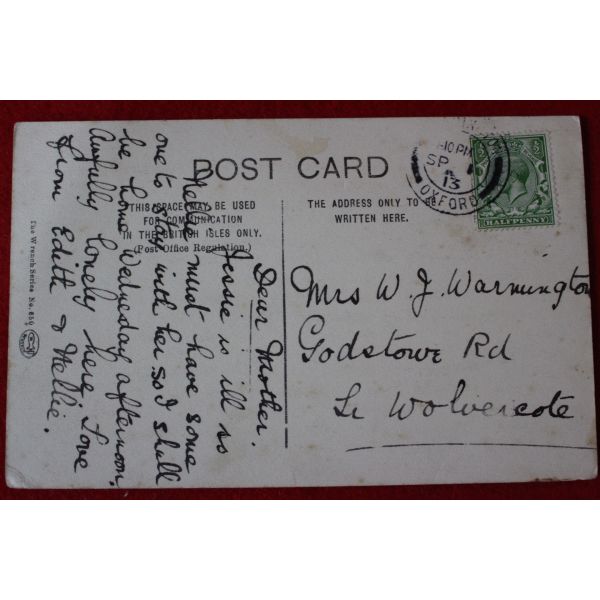 POST CARD
THIS SPACE MAY BE USED
FOR COMMUNICATION
IN THE BRITISH ISLES ONLY.
(Post Office Regulation.)
THE ADDRESS ONLY TO BE
WRITTEN HERE.
10 PM
SP 1
13
OXFORD
HALFPENNY
Dear Mother.
Jessie is ill so
Nellie must have some
one to stay with her so I shall
be home Wednesday afternoon.
Awfully lonely here Love
from Edith & Nellie.
Mrs W. J. Warmington
Godstowe Rd
Wolvercote
The Wrench Series No.